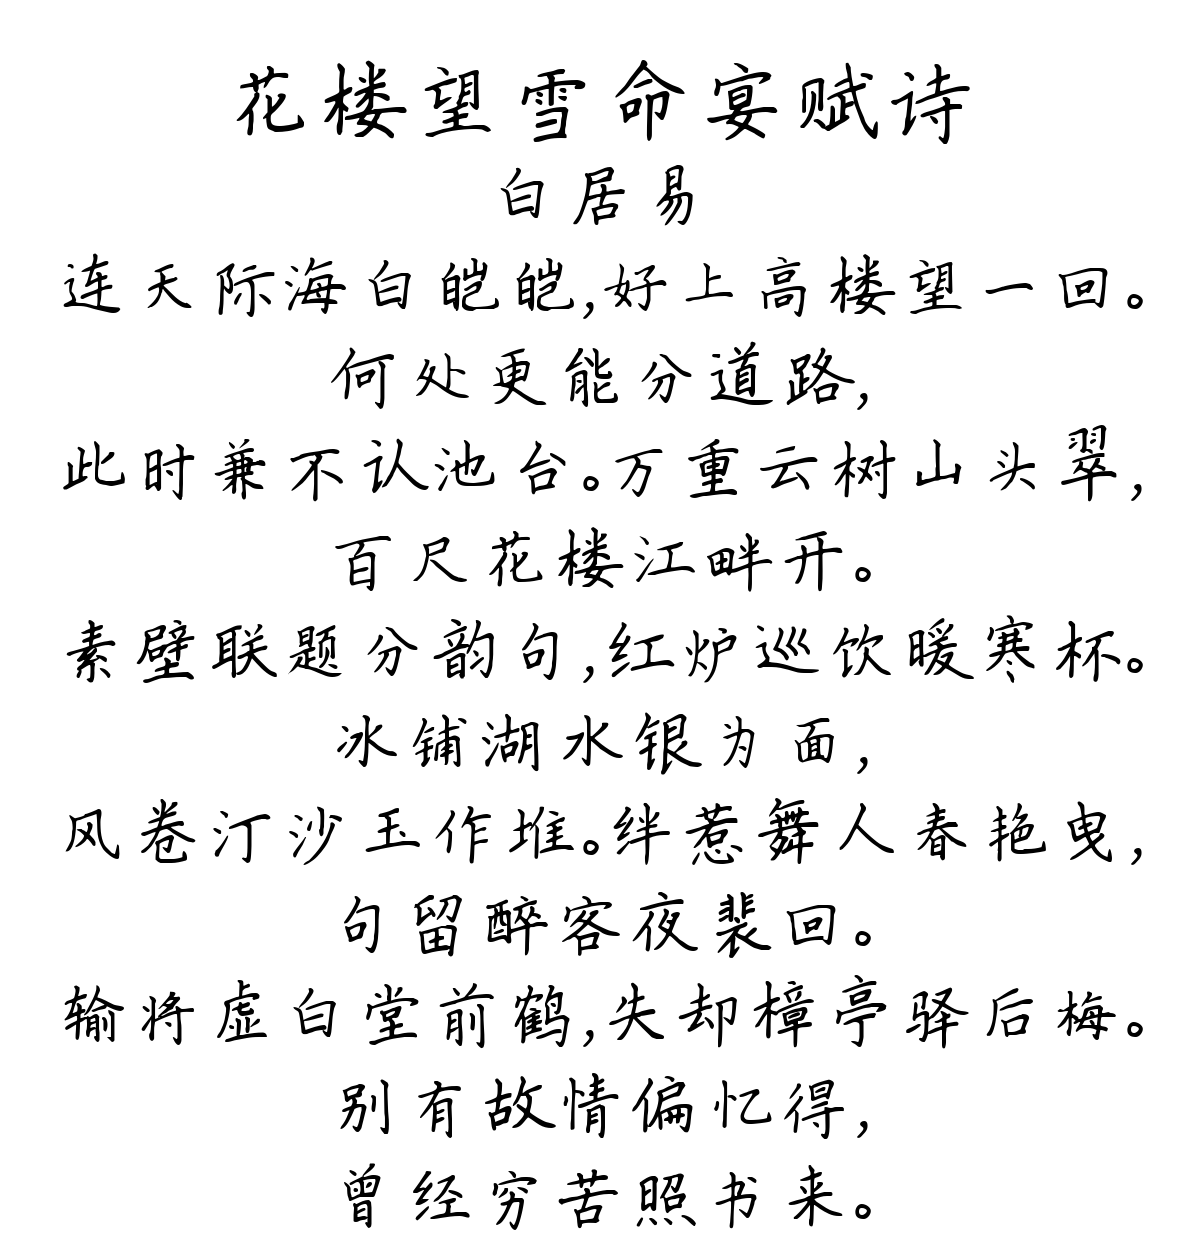 花楼望雪命宴赋诗
白居易
连天际海白皑皑,好上高楼望一回。
何处更能分道路,
此时兼不认池台。万重云树山头翠,
百尺花楼江畔开。
素壁联题分韵句,红炉巡饮暖寒杯。
冰铺湖水银为面,
风卷汀沙玉作堆。绊惹舞人春艳曳,
句留醉客夜裴回。
输将虚白堂前鹤,失却樟亭驿后梅。
别有故情偏忆得,
曾经穷苦照书来。